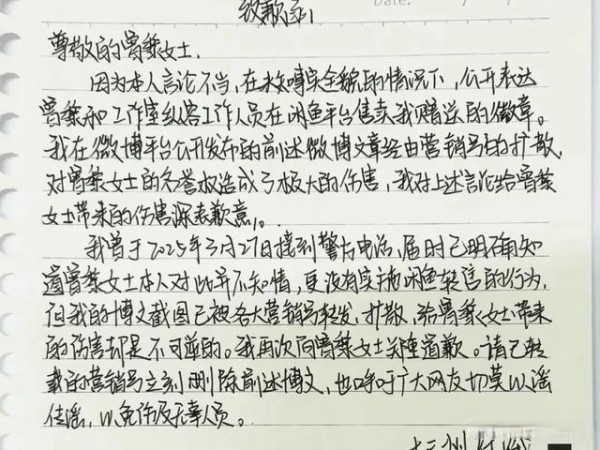 致歉函
Date:
尊敬的曾黎女士.
因为本人言论不当,在未知事实全貌的情况下,公开表达
曾黎和工作室纵容工作人员在闲鱼平台售卖我赠送的徽章。
我在微博平台公开发布的前述微博文章经由营销号的扩散,
对曾黎女士的名誉权造成了极大的伤害,我对上述言论给曾黎
女士带来的伤害深表歉意。
我曾于2025年3月27日接到警方电话,届时已明确知
道曾黎女士本人对此并不知情,更没有实施闲鱼转售的行为,
但我的博文截图已被各大营销号转发、扩散,给曾黎女士带来
的伤害却是不可逆的。我再次向曾黎女士郑重道歉。请已转
载的营销号立刻删除前述博文,也呼吁广大网友切莫以谣
传谣,以免伤及无辜人员。